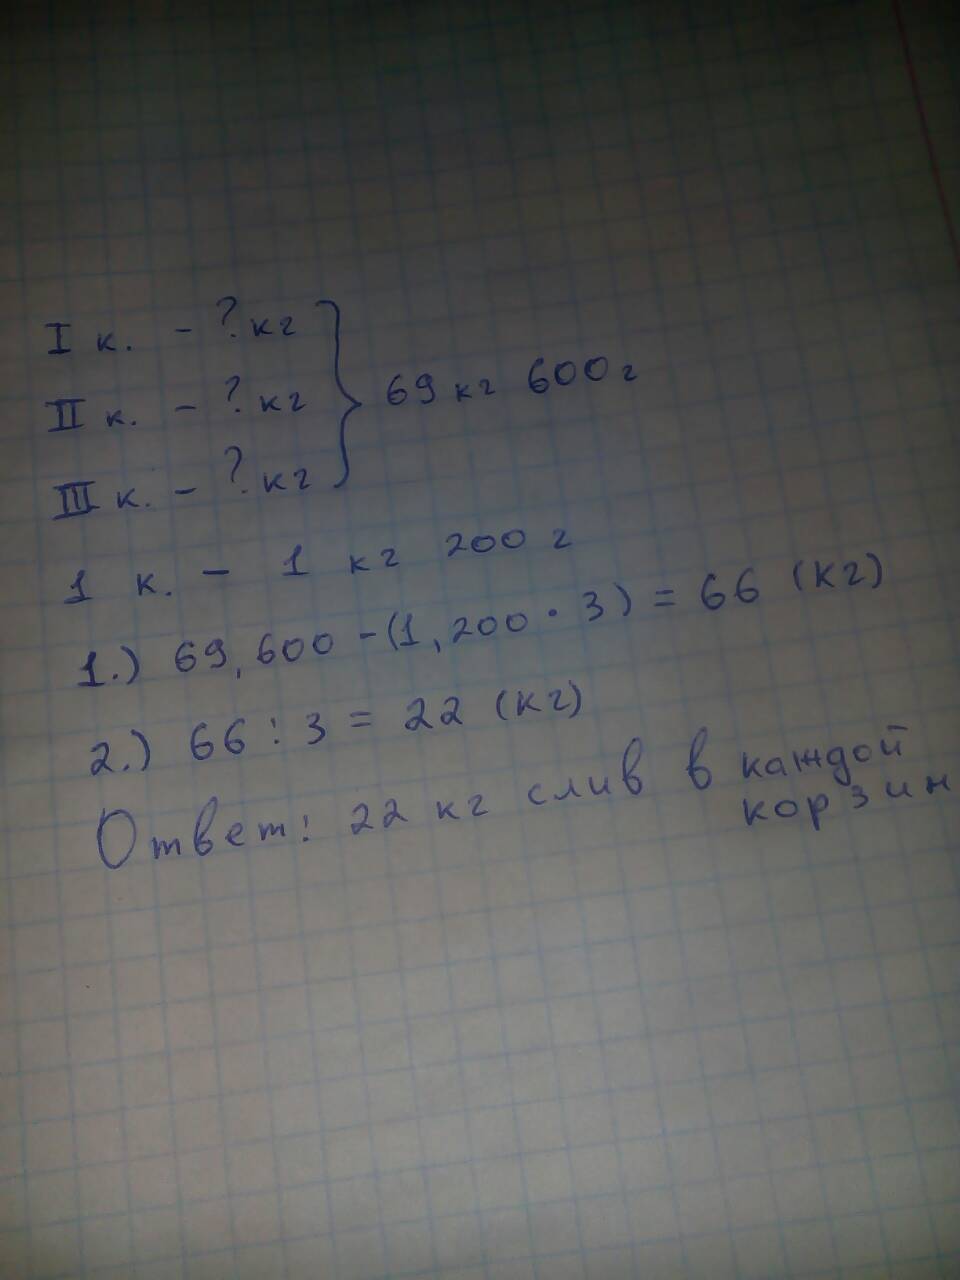 I к. - ? кг
II к. - ? кг
III к. - ? кг
69 кг 600 г
1 к. - 1 кг 200 г
1.) 69,600 - (1,200 · 3) = 66 (кг)
2.) 66 : 3 = 22 (кг)
Ответ: 22 кг слив в каждой
корзин